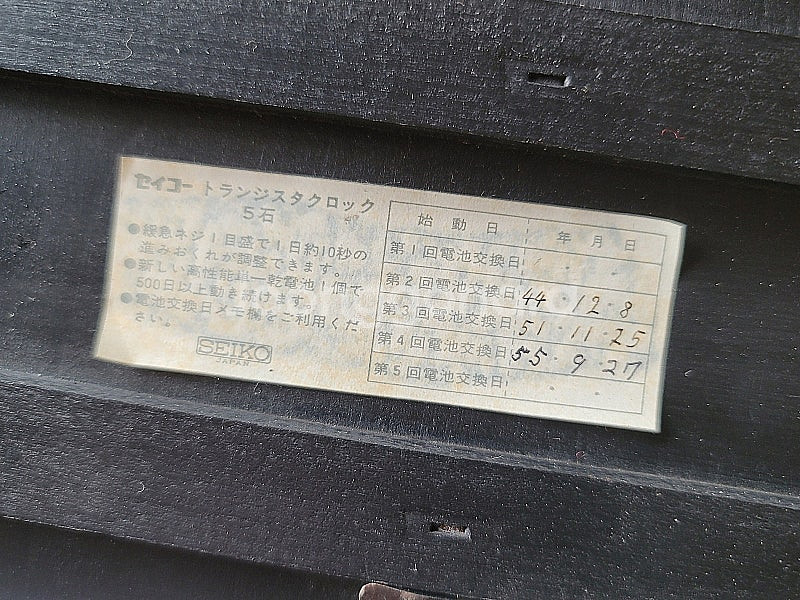 セイコー トランジスタクロック
5石
●緩急ネジ1目盛で1日約10秒の
進みおくれが調整できます。
●新しい高性能単一乾電池1個で
500日以上動き続けます。
●電池交換日メモ欄をご利用くだ
さい。
SEIKO
JAPAN
始動日 年 月 日
第1回電池交換日
第2回電池交換日 44・12・8
第3回電池交換日 51・11・25
第4回電池交換日 55・9・27
第5回電池交換日